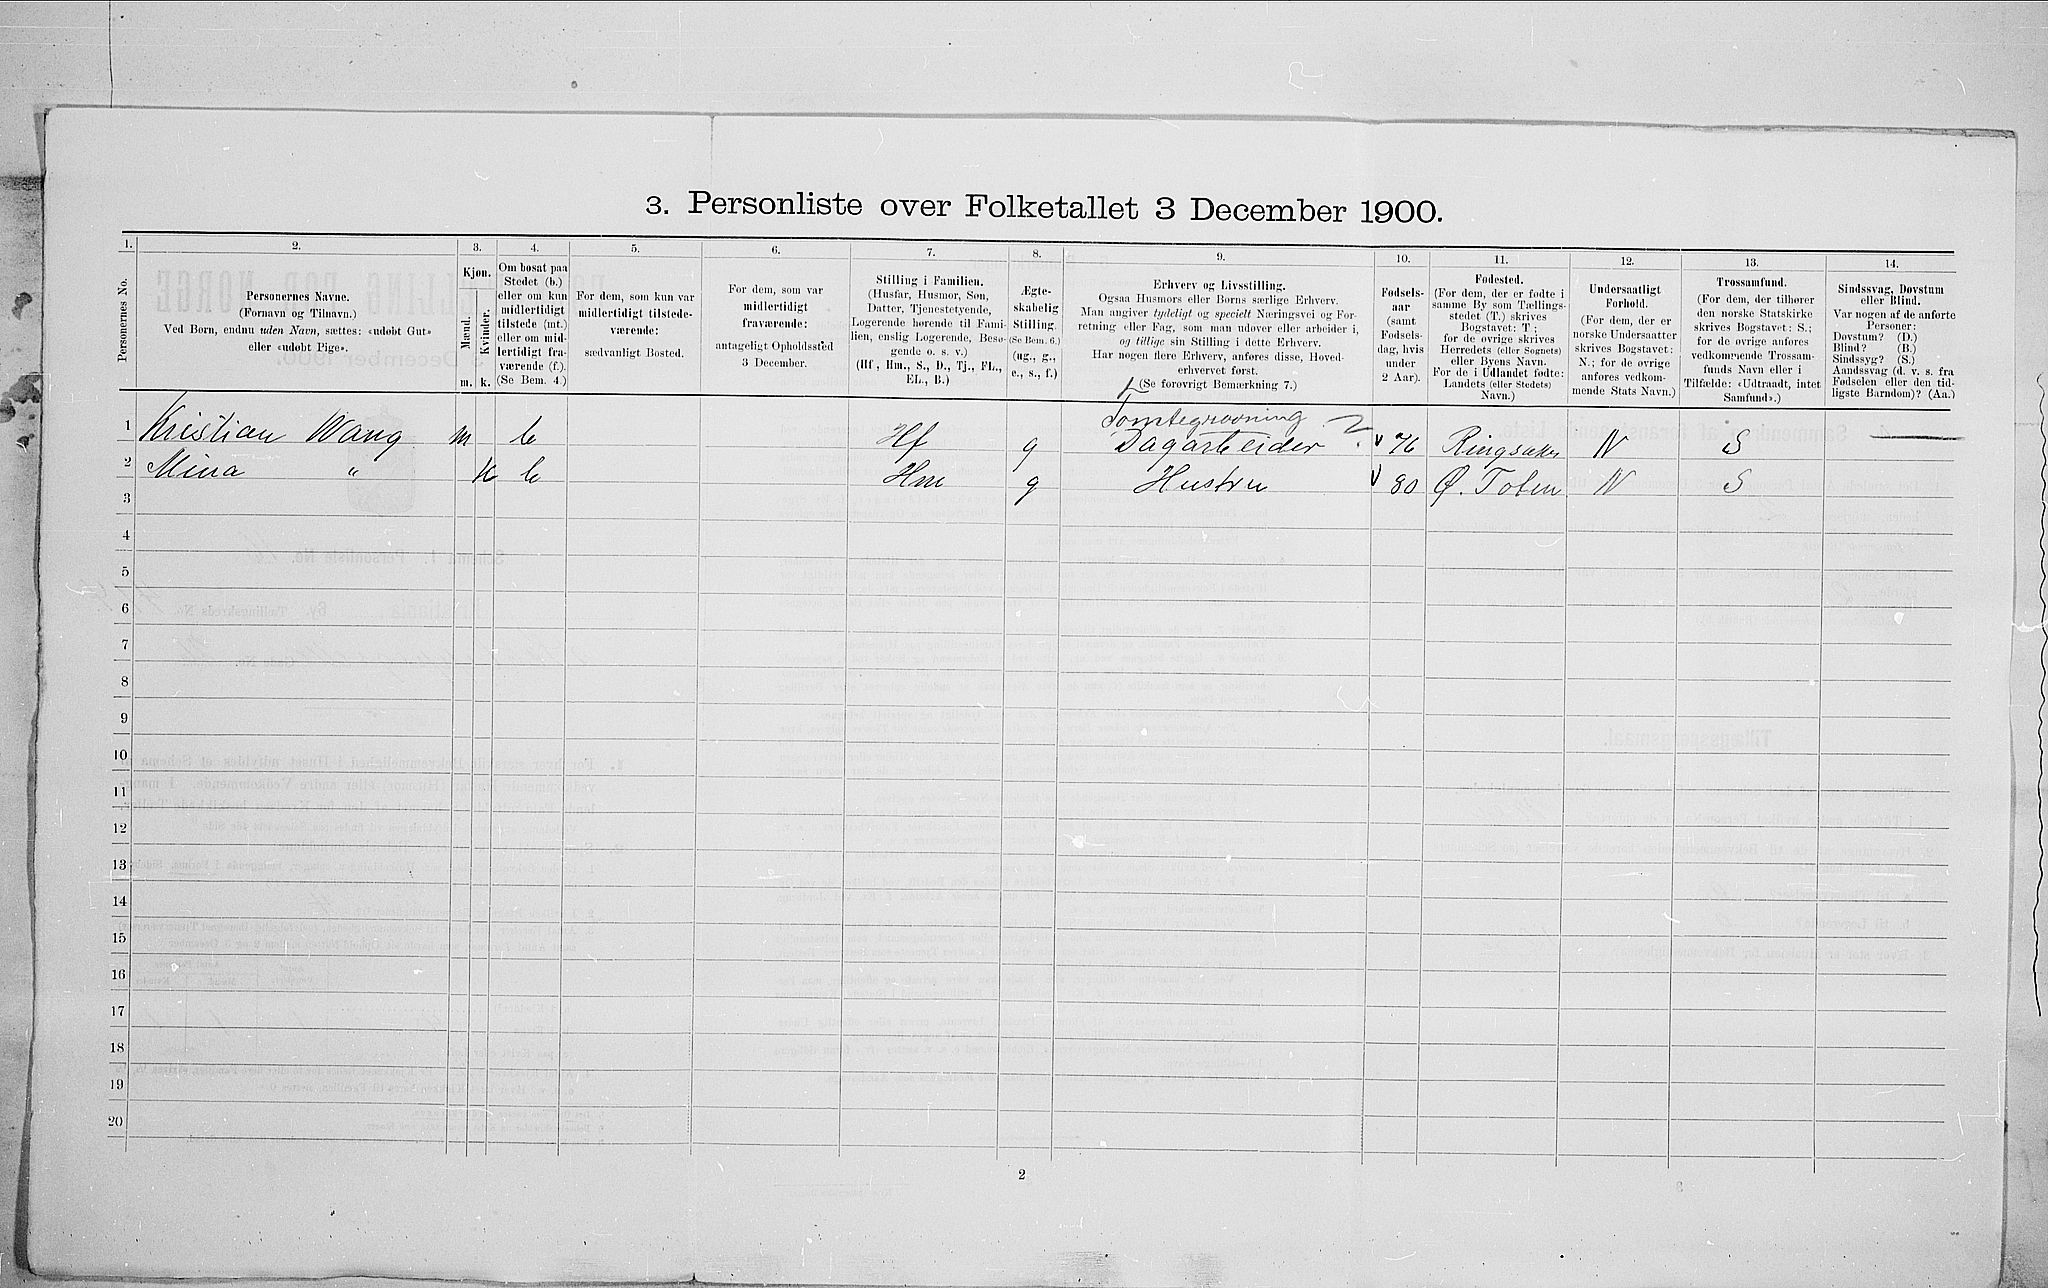 3. Personliste over Folketallet 3 December 1900.
1. 2. 3. 4. 5. 6. 7. 8. 9. 10. 11. 12. 13. 14.
Personernes No.
Personernes Navne.
(Fornavn og Tilnavn.)
Ved Børn, endnu uden Navn, sættes: «udøbt Gut»
eller «udøbt Pige».
Kjøn.
Mænd. Kvinder.
m. k.
Om bosat paa
Stedet (b.)
eller om kun
midlertidigt
tilstede (mt.)
eller om mid-
lertidigt fra-
værende (f.).
(Se Bem. 4.)
For dem, som kun var
midlertidigt tilstede-
værende:
sædvanligt Bosted.
For dem, som var
midlertidigt
fraværende:
antageligt Opholdssted
3 December.
Stilling i Familien.
(Husfar, Husmor, Søn,
Datter, Tjenestetyende,
Logerende hørende til Fami-
lien, enslig Logerende, Besø-
gende o. s. v.)
(Hf., Hm., S., D., Tj., FL.,
EL., B.)
Ægte-
skabelig
Stilling.
(Se Bem. 6.)
(ug., g.,
e., s., f.)
Erhverv og Livsstilling.
Ogsaa Husmors eller Børns særlige Erhverv.
Man angiver tydeligt og specielt Næringsvei og For-
retning eller Fag, som man udøver eller arbeider i,
og tillige sin Stilling i dette Erhverv.
Har nogen flere Erhverv, anføres disse, Hoved-
erhvervet først.
(Se forøvrigt Bemærkning 7.)
Fødsels-
aar
(samt
Fødsels-
dag, hvis
under
2 Aar).
Fødested.
(For dem, der er fødte i
samme By som Tællings-
stedet (T.) skrives
Bogstavet: T;
for de øvrige skrives
Herredets (eller Sognets)
eller Byens Navn.
For de i Udlandet fødte:
Landets (eller Stedets)
Navn.)
Undersaatligt
Forhold.
(For dem, der er
norske Undersaatter
skrives Bogstavet:
N.; for de øvrige
anføres vedkom-
mende Stats Navn.)
Trossamfund.
(For dem, der tilhører
den norske Statskirke
skrives Bogstavet: S.;
for de øvrige anføres
vedkommende Trossam-
funds Navn eller i
Tilfælde: «Udtraadt, intet
Samfund».)
Sindssvag, Døvstum
eller Blind.
Var nogen af de anførte
Personer:
Døvstum? (D.)
Blind? (B.)
Sindssyg? (S.)
Aandssvag (d. v. s. fra
Fødselen eller den tid-
ligste Barndom)? (Aa.)
Tomtegravning ?
1 Kristian Wang m b Hf g Dagarbeider 76 Ringsaker N S
2 Mina " K b Hm g Hustru 80 Ø. Toten N S
3
4
5
6
7
8
9
10
11
12
13
14
15
16
17
18
19
20
2